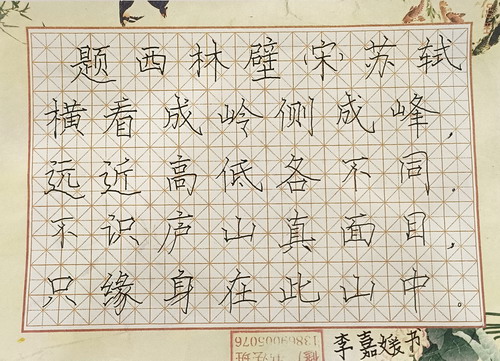 题西林壁 宋·苏轼
横看成岭侧成峰,
远近高低各不同.
不识庐山真面目,
只缘身在此山中。
李嘉媛书
13809005076